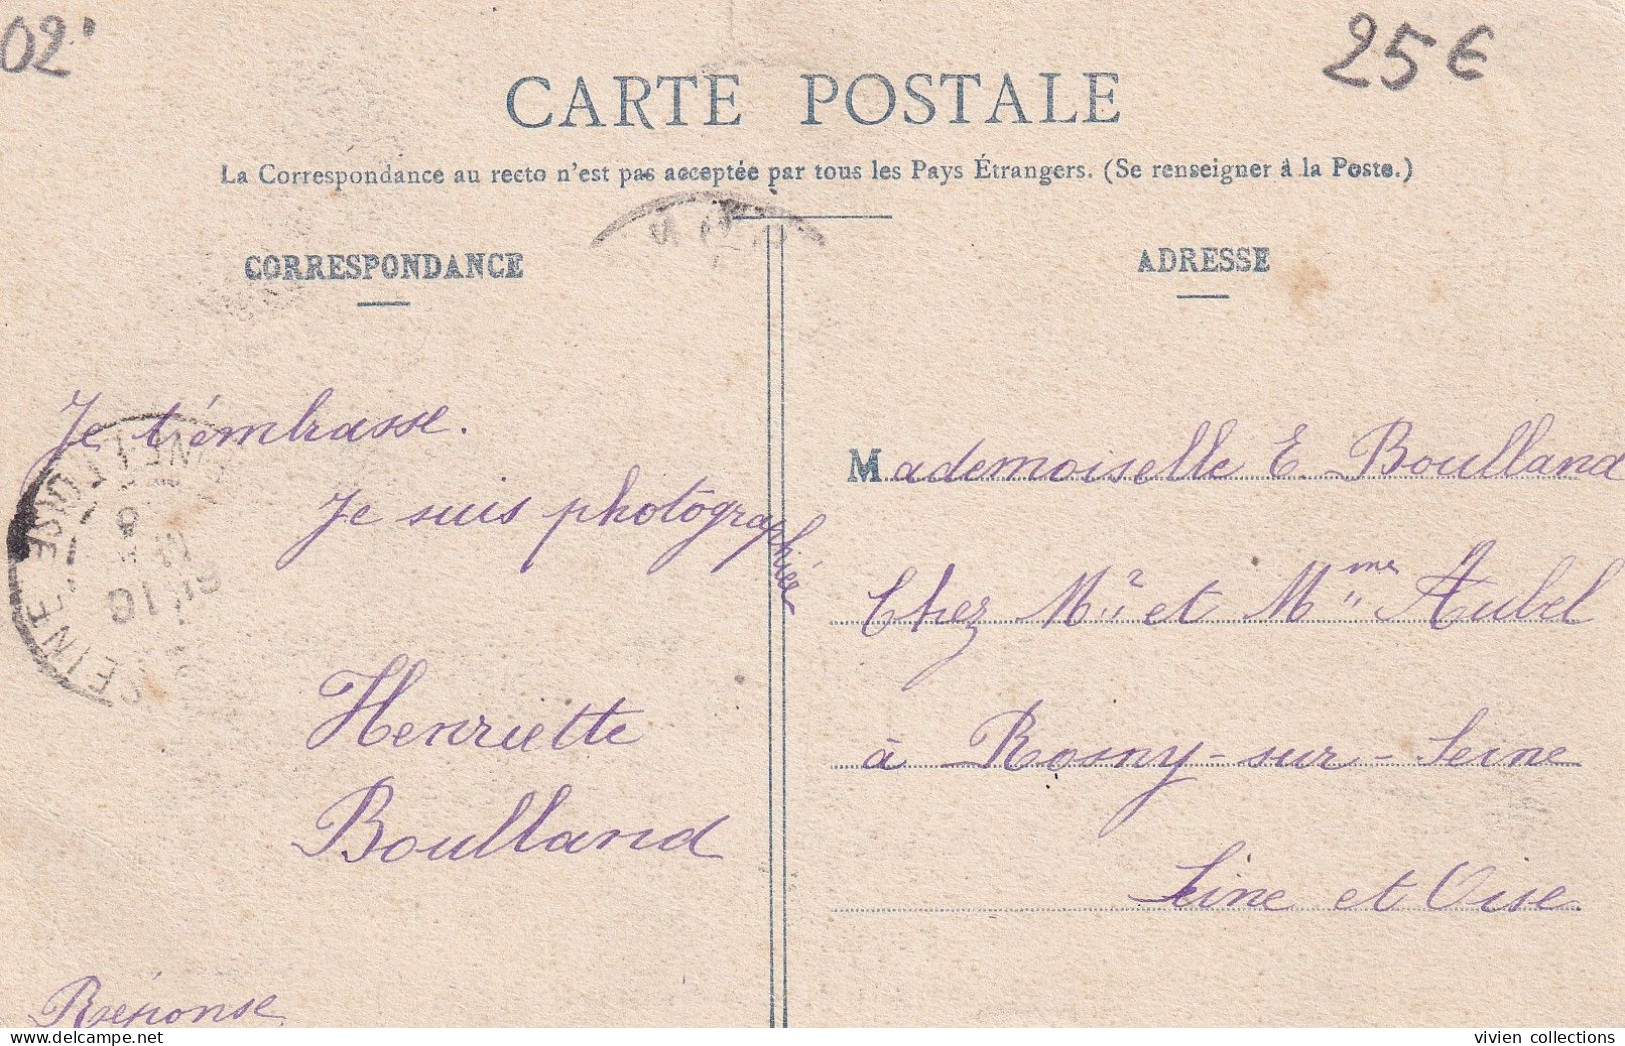 02'
25€
CARTE POSTALE
La Correspondance au recto n'est pas acceptée par tous les Pays Étrangers. (Se renseigner à la Poste.)
CORRESPONDANCE
Je t'émbrasse.
Je suis photographiée
Henriette
Boulland
Réponse
SEINE ET OISE
ADRESSE
Mademoiselle E. Boulland
Chez Mr et Mme Aubel
à Rosny-sur-Seine
Seine et Oise.
vivien collections